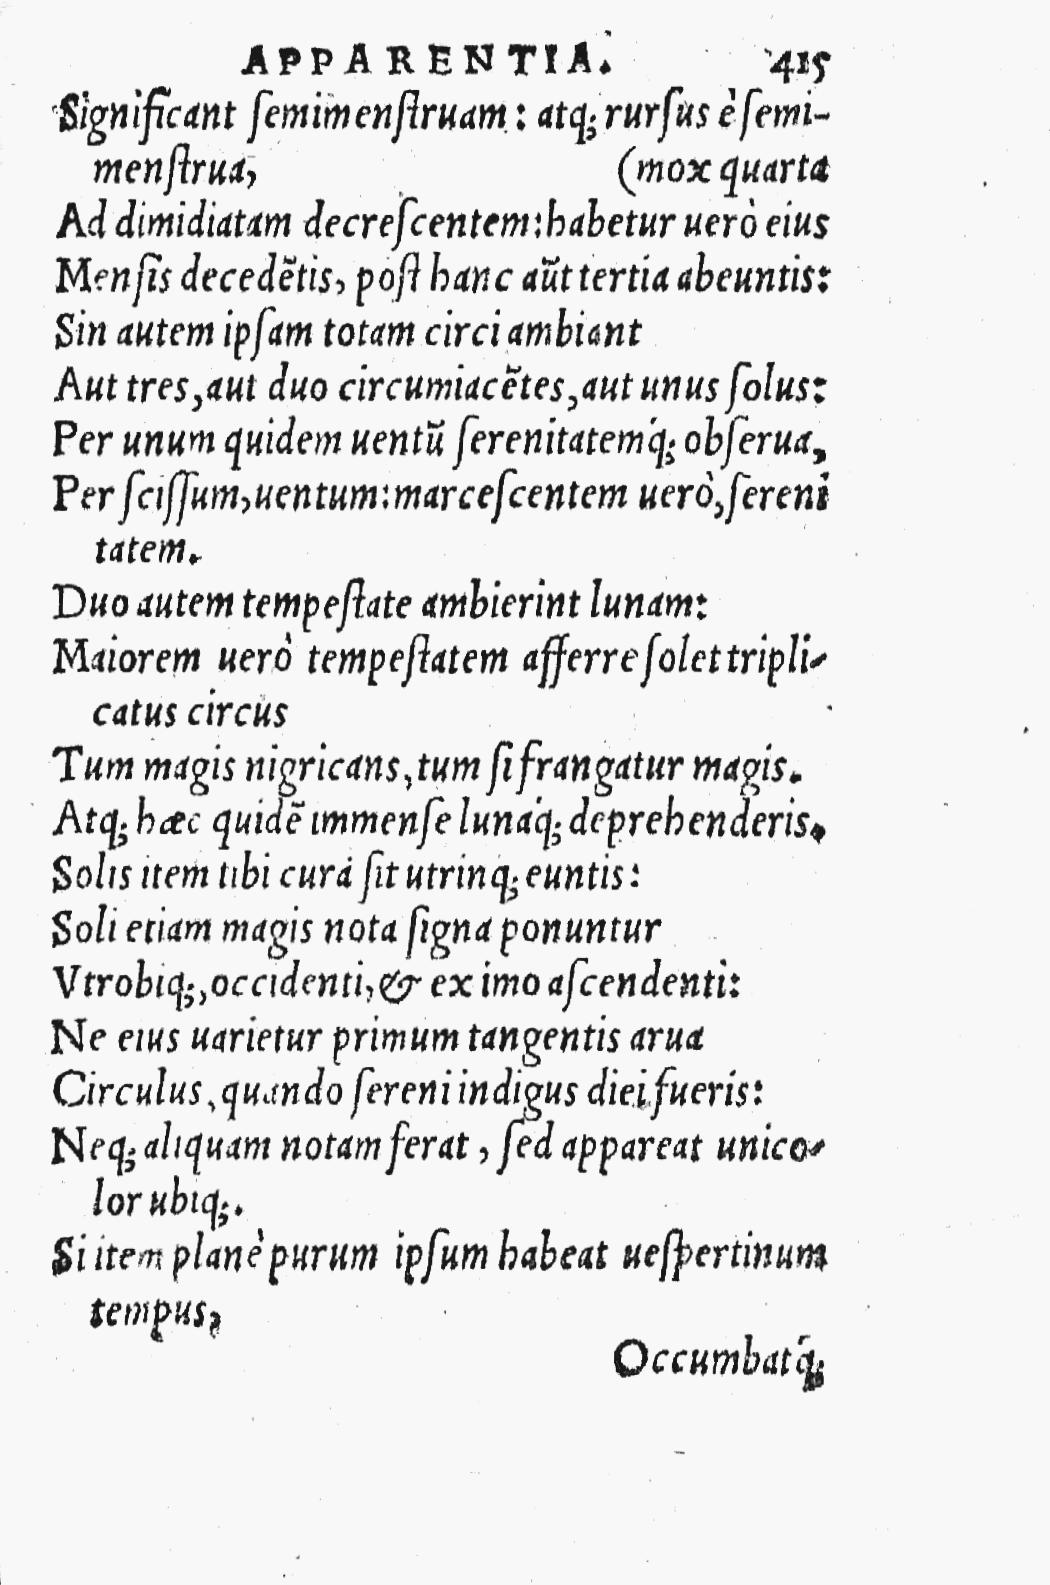 APPARENTIA. 415
Significant ſemimenſtruam: atq; rurſus è ſemi-
menſtrua, (mox quarta
Ad dimidiatam decreſcentem: habetur uerò eius
Menſis decedẽtis, poſt hanc aũt tertia abeuntis:
Sin autem ipſam totam circi ambiant
Aut tres, aut duo circumiacẽtes, aut unus ſolus:
Per unum quidem uentũ ſerenitatemq́; obſerua,
Per ſciſſum, uentum: marceſcentem uerò, ſereni
tatem.
Duo autem tempeſtate ambierint lunam:
Maiorem uerò tempeſtatem afferre ſolet tripli-
catus circus
Tum magis nigricans, tum ſi frangatur magis.
Atq; hæc quidẽ immenſe lunaq́; deprehenderis.
Solis item tibi cura ſit utrinq; euntis:
Soli etiam magis nota ſigna ponuntur
Vtrobiq;, occidenti, & ex imo aſcendenti:
Ne eius uarietur primum tangentis arua
Circulus, quando ſereni indigus diei fueris:
Neq; aliquam notam ferat, ſed appareat unico-
lor ubiq;.
Si item planè purum ipſum habeat ueſpertinum
tempus,
Occumbatq́;